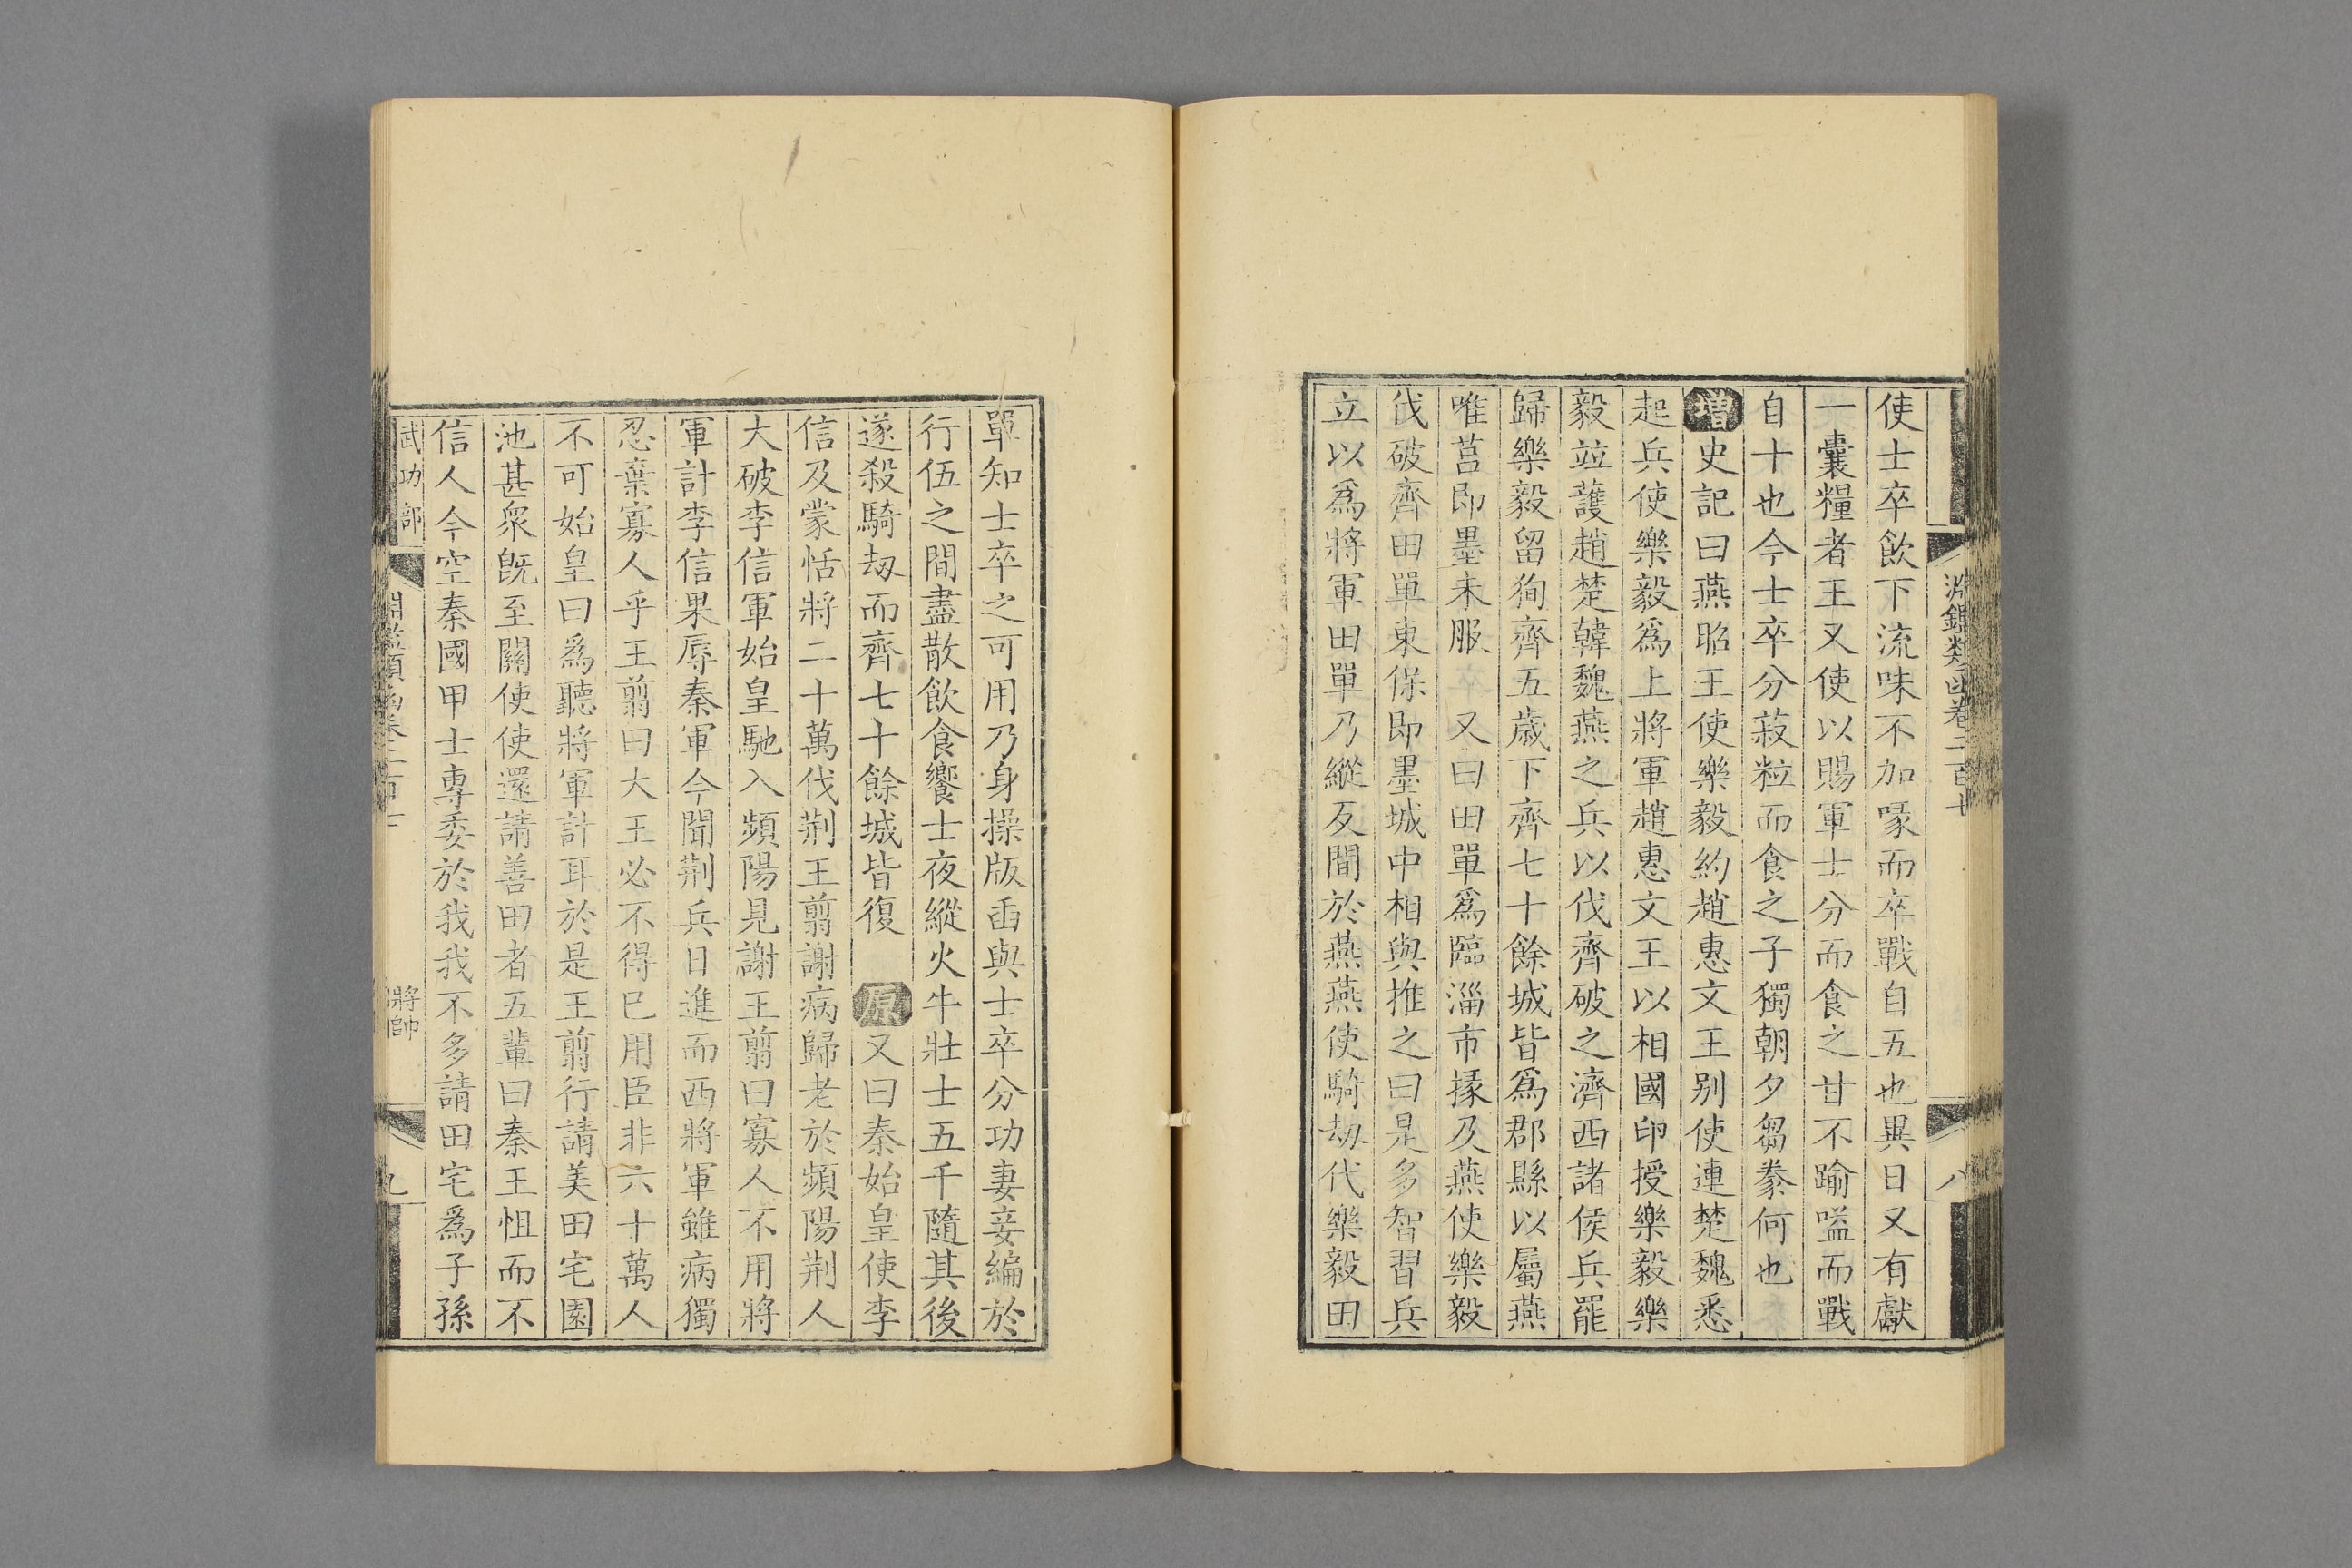 淵鑑類函卷二百十
八
使士卒飲下流味不加喙而卒戰自五也異日又有獻
一囊糧者王又使以賜軍士分而食之甘不踰嗌而戰
自十也今士卒分菽粒而食之子獨朝夕芻豢何也
增史記曰燕昭王使樂毅約趙惠文王别使連楚魏悉
起兵使樂毅爲上將軍趙惠文王以相國印授樂毅樂
毅竝護趙楚韓魏燕之兵以伐齊破之濟西諸侯兵罷
歸樂毅留狥齊五歲下齊七十餘城皆爲郡縣以屬燕
唯莒即墨未服 又曰田單爲臨淄市掾及燕使樂毅
伐破齊田單東保即墨城中相與推之曰是多智習兵
立以爲將軍田單乃縱反間於燕燕使騎劫代樂毅田
單知士卒之可用乃身操版臿與士卒分功妻妾編於
行伍之間盡散飲食饗士夜縱火牛壯士五千隨其後
遂殺騎刼而齊七十餘城皆復 原又曰秦始皇使李
信及蒙恬將二十萬伐荆王翦謝病歸老於頻陽荆人
大破李信軍始皇馳入頻陽見謝王翦曰寡人不用將
軍計李信果辱秦軍今聞荆兵日進而西將軍雖病獨
忍棄寡人乎王翦曰大王必不得已用臣非六十萬人
不可始皇曰爲聽將軍計耳於是王翦行請美田宅園
池甚衆既至關使使還請善田者五輩曰秦王怚而不
信人今空秦國甲士專委於我我不多請田宅爲子孫
武功部
淵鑑類函卷二百十
將帥
九